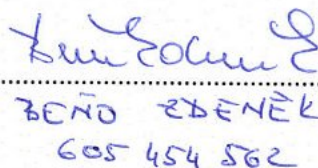 BEŇO ZDENĚK
605 454 562